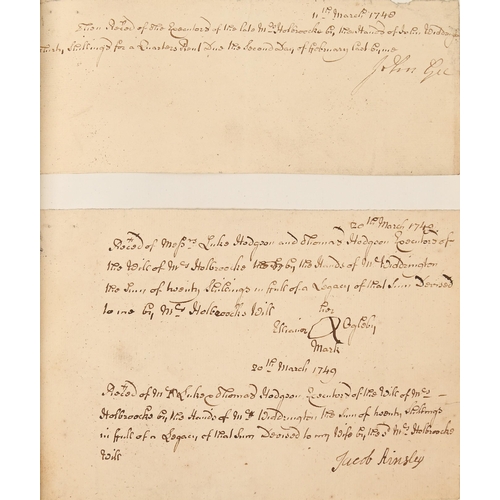 11th March 1748
Then Recd of the Executors of the late Mrs Holbroocke by the Hands of John Widdington
Thirty Shillings for a Quarters Rent Due the Second day of February last by me
John Gee
20th March 1748
Recd of Messrs Luke Hodgson and Thomas Hodgson Executors of
the Will of Mrs Holbroocke by the Hands of Mr Widdrington
the Sum of twenty Shillings in full of a Legacy of that Sum Devised
to me by Mrs Holbroocke Will
her
Ellianor Ogleby
Mark
20th March 1749
Recd of Mrs Luke & Thomas Hodgson Executors of the Will of Mrs
Holbroocke by the Hands of Mr Widdrington the Sum of twenty Shillings
in full of a Legacy of that Sum Devised to my Wife by the sd Mrs Holbroocke
Will
Jacob Kinsley